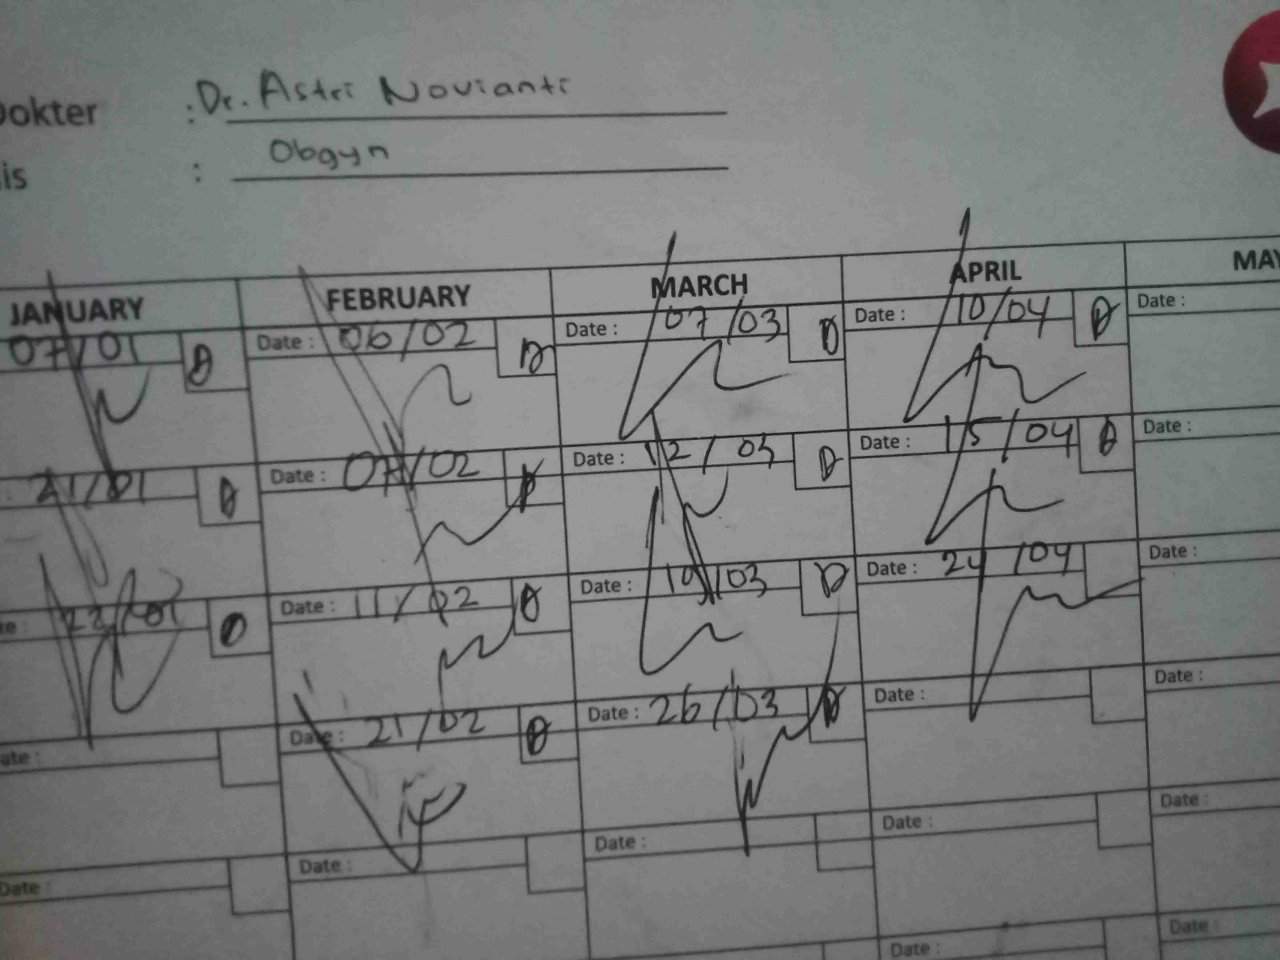 Dokter : Dr. Astri Novianti
is : Obgyn
JANUARY FEBRUARY MARCH APRIL MAY
07/01 D Date : 06/02 D Date : 07/03 D Date : 10/04 D Date :
21/01 D Date : 07/02 D Date : 12/03 D Date : 15/04 D Date :
22/01 D Date : 11/02 D Date : 19/03 D Date : 24/04 Date :
ate : Date : 21/02 D Date : 26/03 D Date : Date :
Date : Date : Date : Date : Date :
Date : Date :